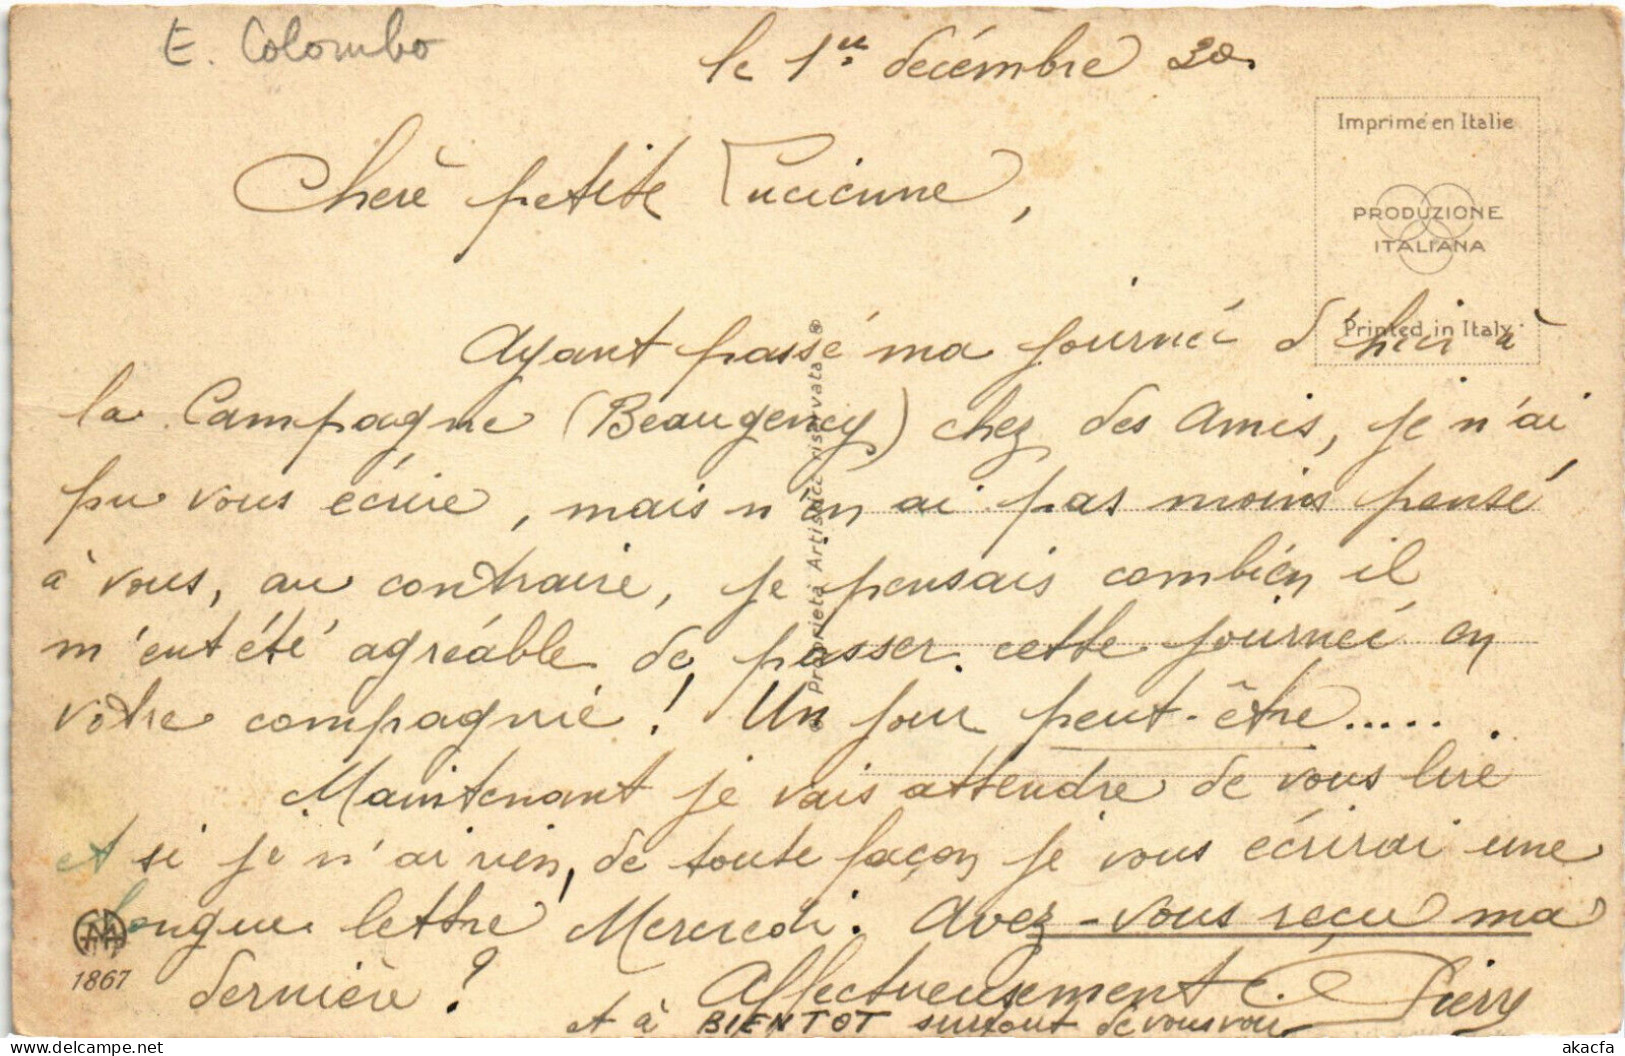 E. Colombo
le 1er décembre 30.
Imprimé en Italie
PRODUZIONE
ITALIANA
Printed in Italy
Cherè petite Lucienne,
Ayant passé ma journeé d'hier à
la Campagne (Beaugency) chez des Amis, je n'ai
pu vous écrire, mais n'en ai pas moins pensé
à vous, au contraire, je pensais combien il
m'eut été agréable de passer cette journeé en
votre compagnie! Un jour peut-être.....
Maintenant je vais attendre de vous lire
et si je n'ai rien, de toute façon je vous écrirai une
longue lettre Mercredi. Avez-vous reçu ma
dernière?
Affectueusement
et à BIENTOT surtout de vous voir
Pierry
Proprietà Artistica riservata
1867
akacfa